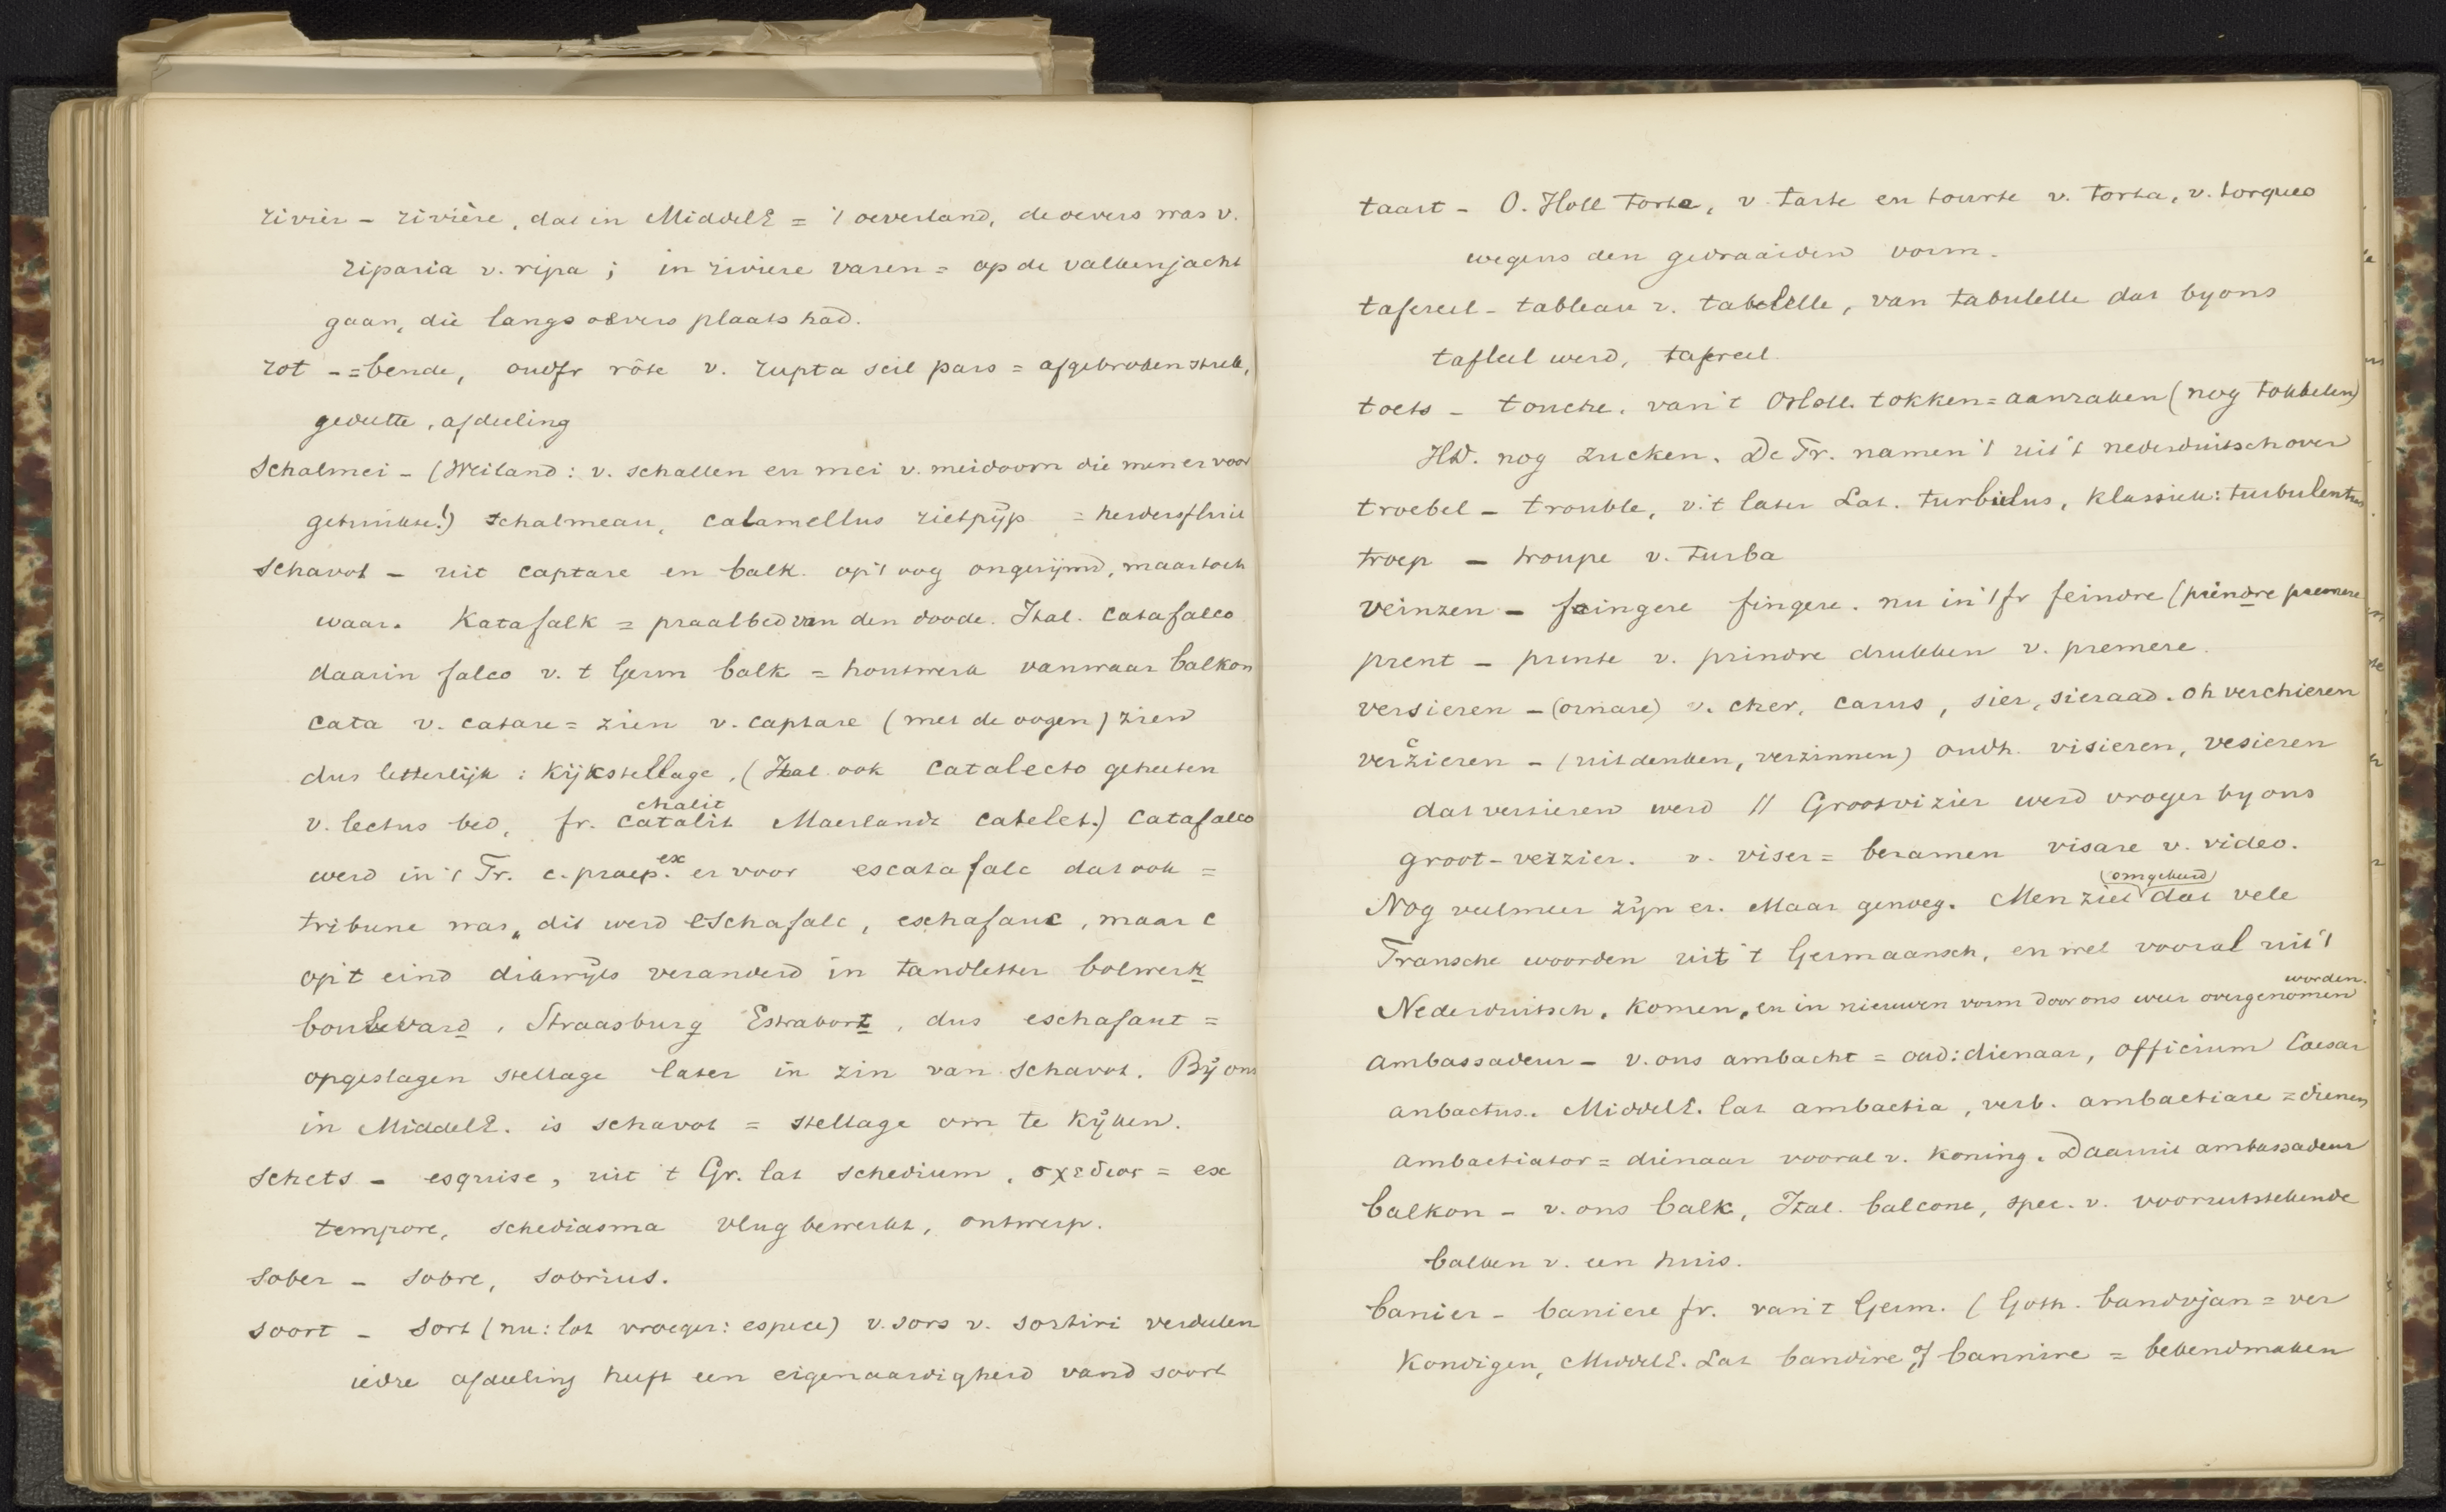 rivier - rivière, dat in MiddelE = 't oeverland, de oevers was v.
riparia v. ripa ; in riviere varen = op de valkenjacht
gaan, die langs oevers plaats had.
rot - = bende, oudfr rôte v. rupta scil pars = afgebroken struk,
gedeelte, afdeeling
Schalmei - (Weiland : v. schallen en mei v. meidoorn die men er voor
gebruikte!) schalmeau, calamellus rietpijp = herdersfluit
schavot - uit captare en balk. op 't oog ongerijmd, maar toch
waar. Katafalk = praalbed van den doode. Ital. catafalco
daarin falco v. t Germ balk = houtwerk vanwaar balkon
cata v. catare = zien v. captare (met de oogen) zien
dus letterlijk : kijkstellage. (Ital ook catalecto geheeten
chalit
v. lectus bed, fr. catalit Maerlandt catelet.) catafalco
ex
werd in 't Fr. c. praep. er voor escatafalc dat ook =
tribune was, dit werd eschafalc, eschafauc, maar c
op 't eind dikwijls veranderd in tandletter bolwerk
boulevard, Straasburg Estrabort, dus eschafaut =
opgeslagen stellage later in zin van schavot. Bij ons
in MiddelE. is schavot = stellage om te kijken.
schets - esquise, uit 't Gr. lat schedium, σχεδιος = ex
tempore, schediasma vlug bewerkt, ontwerp.
sober - sobre, sobrius.
soort - sort (nu: lot vroeger: espece) v. sors v. sortiri verdeelen
iedre afdeeling heeft een eigenaardigheid vand soort
taart - O. Holl torte, v tarte en tourte v. torta, v. torqueo
wegens den gedraaiden vorm.
tafereel - tableau v. tabelelle, van tabulelle dat by ons
tafleel werd, tafereel.
toets - touche, van 't OHoll. tokken = aanraken (nog tokkelen)
HD. nog zucken. De Fr. namen 't uit 't nederduitsch over
troebel - trouble, v. 't later Lat. turbulus, klassiek: turbulentus
troep - troupe v. turba
veinzen - feingere fingere. nu in 't fr feindre (preindre premere
prent - prente v. prindre drukken v. premere.
versieren - (ornare) v. cher, carus, sier, sieraad. oh verchieren
c
verzieren - (uitdenken, verzinnen) oudh. visieren, vesieren
dat versieren werd // Grootvizier werd vroeger by ons
groot-verzier. v. viser = beramen visare v. video.
(omgekeerd)
Nog veelmeer zijn er. Maar genoeg. Men ziet dat vele
Fransche woorden uit 't Germaansch, en wel vooral uit 't
worden.
Nederduitsch, komen, en in nieuwen vorm door ons weer overgenomen
ambassadeur - v. ons ambacht = oud: dienaar, officium Caesar
anbactus. MiddelE. lat ambactia, verb. ambactiare = dienen
ambactiator = dienaar vooral v. koning. Daaruit ambassadeur
balkon - v. ons balk, Ital. balcone, spec. v. vooruitstekende
balken v. een huis.
banier - baniere fr. van 't Germ. (Goth. bandvjan = ver
kondigen, MiddelE. Lat bandire of bannire = bekendmaken